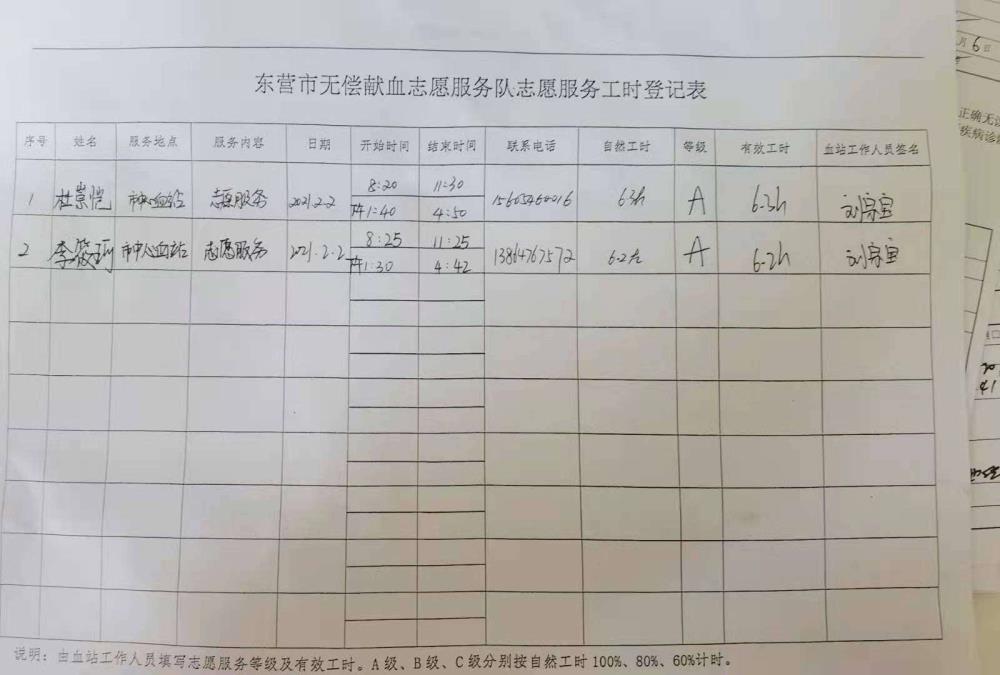 东营市无偿献血志愿服务队志愿服务工时登记表
序号 姓名 服务地点 服务内容 日期 开始时间 结束时间 联系电话 自然工时 等级 有效工时 血站工作人员签名
1 杜崇恺 市中心血站 志愿服务 2021.2.2 8:20 11:30 15605460016 6.3h A 6.3h
下午1:40 4:50
2 李筱珂 市中心血站 志愿服务 2021.2.2 8:25 11:25 13864767572 6.2h A 6.2h
下午1:30 4:42
说明:由血站工作人员填写志愿服务等级及有效工时。A级、B级、C级分别按自然工时100%、80%、60%计时。
月6日
正确无误
疾病诊